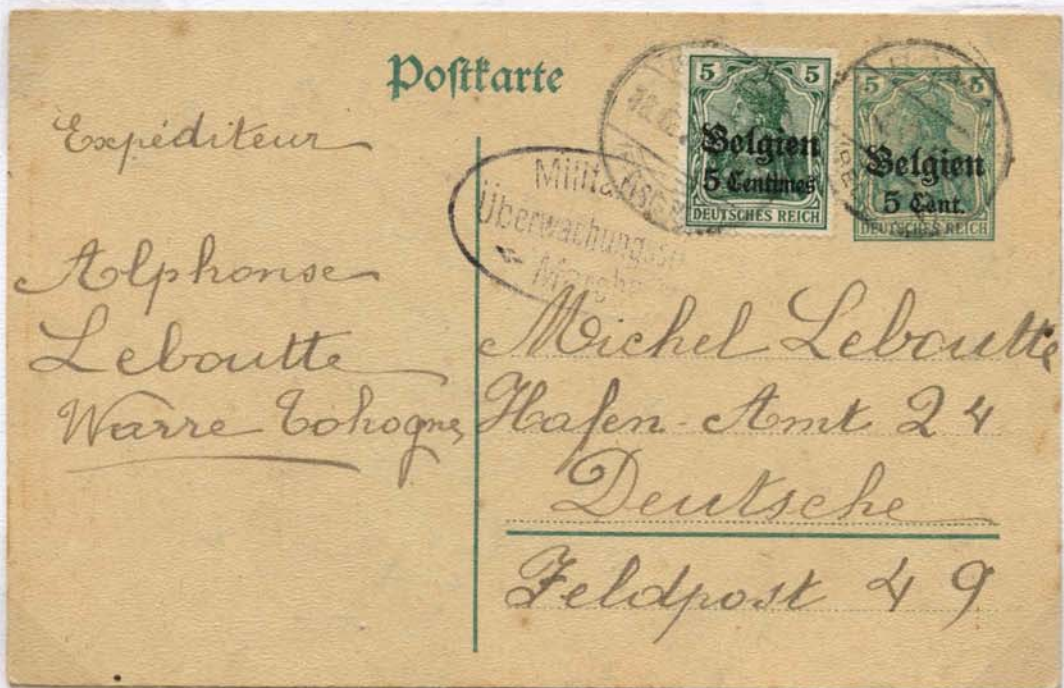 Postkarte
Expéditeur
Alphonse
Leboutte
Warre Tohogne
5 5
Belgien
5 Centimes
DEUTSCHES REICH
5 5
Belgien
5 Cent.
DEUTSCHES REICH
Michel Leboutte
Hafen-Amt 24
Deutsche
Feldpost 49